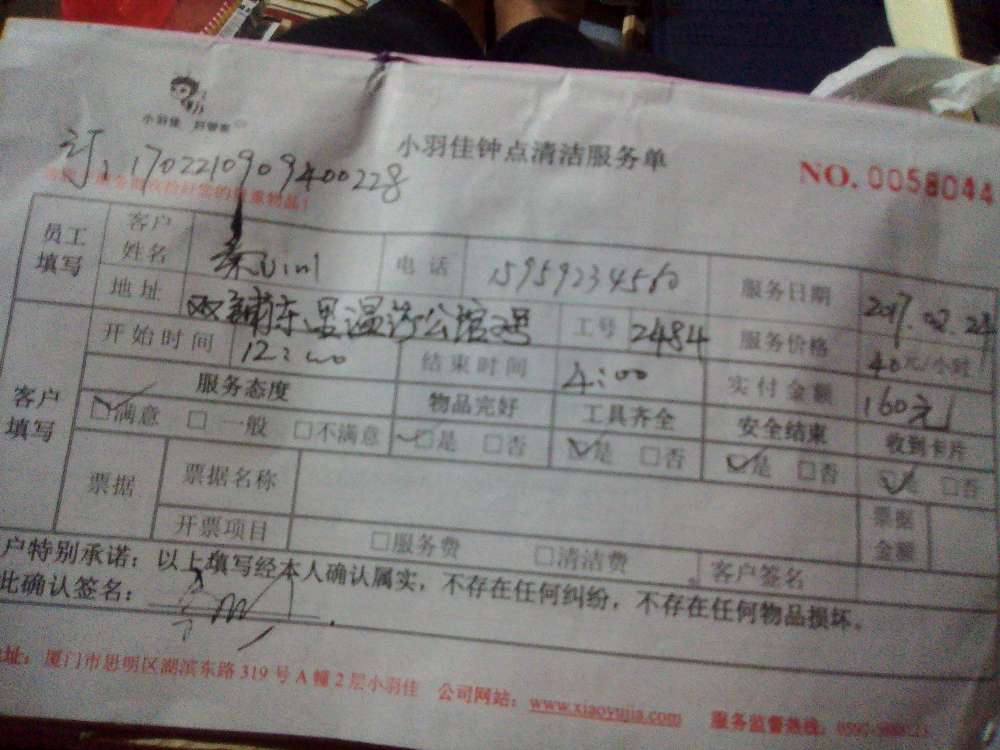 小羽佳 好管家
小羽佳钟点清洁服务单
NO. 0058044
订: 1702210909400228
员工填写
客户姓名
电话 15959234560
服务日期 2017.02.24
地址
工号 2484
服务价格 40元/小时
客户填写
开始时间 12:00
结束时间 4:00
实付金额 160元
服务态度 物品完好 工具齐全 安全结束 收到卡片
□满意 □一般 □不满意 □是 □否 □是 □否 □是 □否 □是 □否
票据
票据名称
票据金额
开票项目 □服务费 □清洁费 客户签名
户特别承诺：以上填写经本人确认属实，不存在任何纠纷，不存在任何物品损坏。
此确认签名：
址：厦门市思明区湖滨东路319号A幢2层小羽佳 公司网站：www.xiaoyujia.com 服务监督热线：